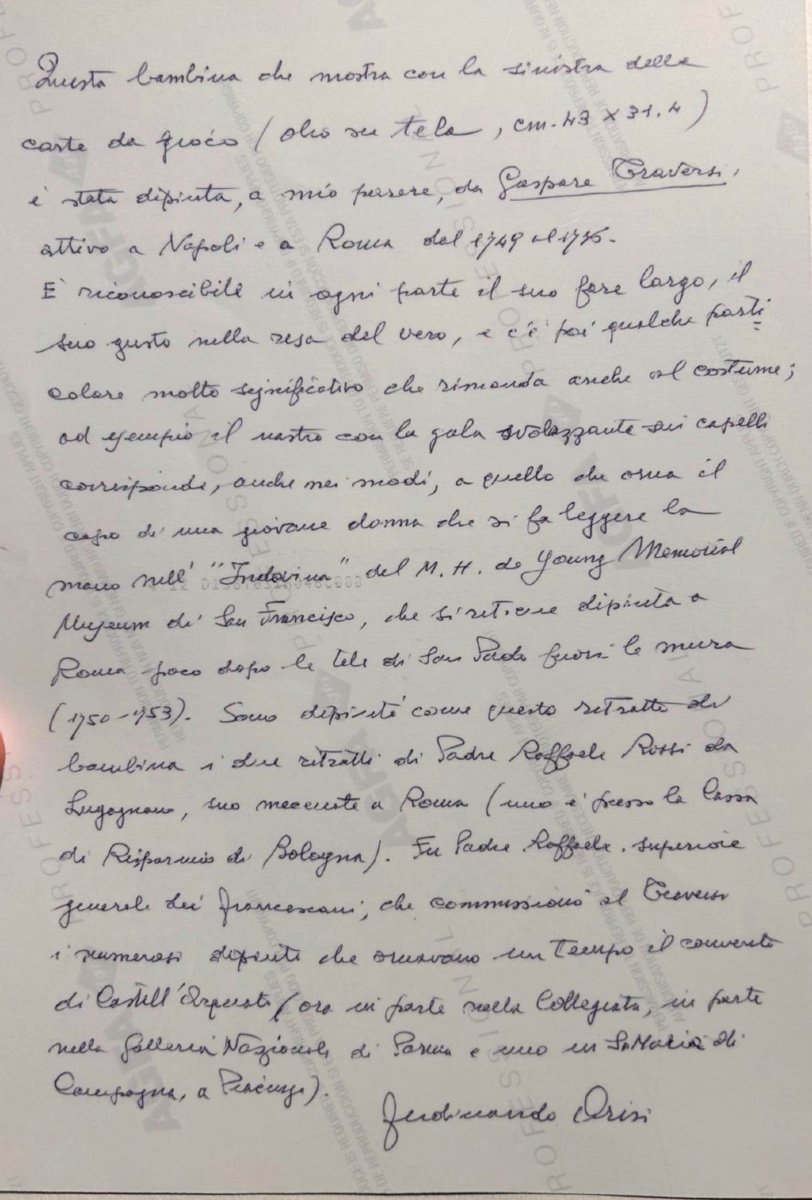 Questa bambina che mostra con la sinistra delle
carte da gioco (olio su tela, cm. 43 x 31.4)
è stata dipinta, a mio parere, da Gaspare Traversi,
attivo a Napoli e a Roma dal 1749 al 1776.
È riconoscibile in ogni parte il suo fare largo, il
suo gusto nella resa del vero, e c'è poi qualche parti=
colare molto significativo che rimanda anche al costume;
ad esempio il nastro con la gala svolazzante sui capelli
corrisponde, anche nei modi, a quello che orna il
capo di una giovane donna che si fa leggere la
mano nell' "Indovina" del M. H. de Young Memorial
Museum di San Francisco, che si ritiene dipinta a
Roma poco dopo le tele di San Paolo fuori le mura
(1750-1753). Sono dipinti come questo ritratto di
bambina i due ritratti di Padre Raffaele Rossi da
Lugagnano, suo mecenate a Roma (uno è presso la Cassa
di Risparmio di Bologna). Fu Padre Raffaele, superiore
generale dei francescani, che commissionò al Traversi
i numerosi dipinti che ornavano un tempo il convento
di Castell'Arquato (ora in parte nella Collegiata, in parte
nella Galleria Nazionale di Parma e uno in S. Maria di
Campagna, a Piacenza).
Ferdinando Arisi
AGFA PROFESSIONAL